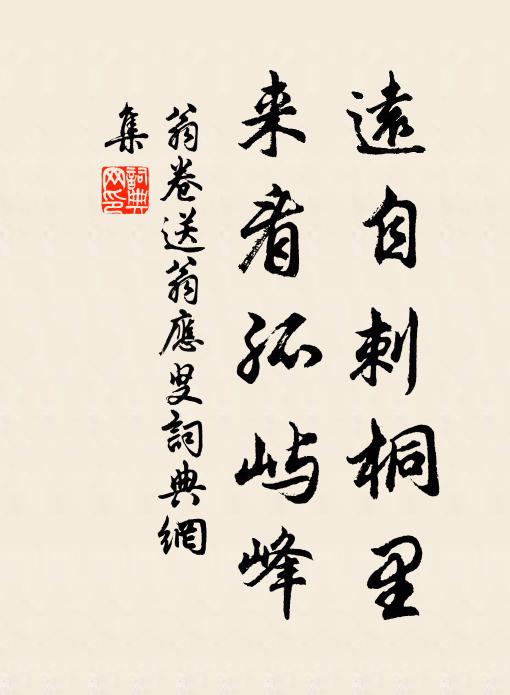 遠自刺桐里
来看孤屿峰
翁卷送翁應叟詞典網
集
詞典
网印